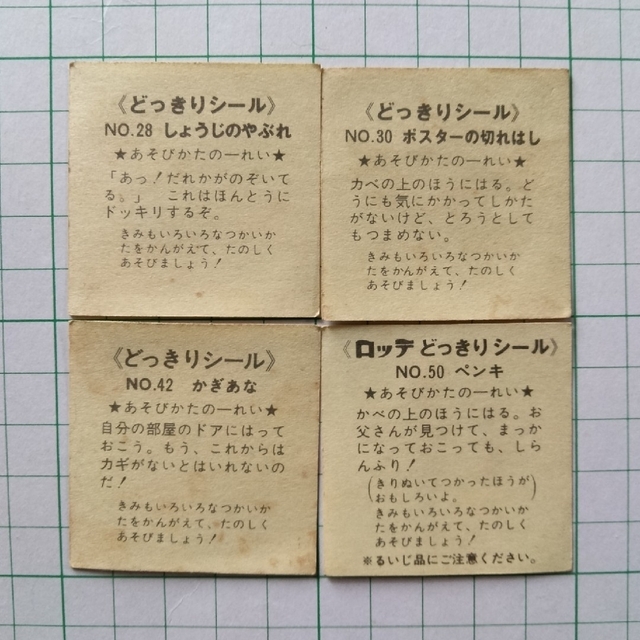 《どっきりシール》
NO.28 しょうじのやぶれ
★あそびかたの一れい★
「あっ!だれかがのぞいて
る。」 これはほんとうに
ドッキリするぞ。
きみもいろいろなつかいか
たをかんがえて、たのしく
あそびましょう!
《どっきりシール》
NO.30 ポスターの切れはし
★あそびかたの一れい★
カベの上のほうにはる。ど
うにも気にかかってしかた
がないけど、とろうとして
もつまめない。
きみもいろいろなつかいか
たをかんがえて、たのしく
あそびましょう!
《どっきりシール》
NO.42 かぎあな
★あそびかたの一れい★
自分の部屋のドアにはって
おこう。もう、これからは
カギがないとはいれないの
だ!
きみもいろいろなつかいか
たをかんがえて、たのしく
あそびましょう!
《ロッテ どっきりシール》
NO.50 ペンキ
★あそびかたの一れい★
かべの上のほうにはる。お
父さんが見つけて、まっか
になっておこっても、しら
んふり!
(きりぬいてつかったほうが
おもしろいよ。)
きみもいろいろなつかいか
たをかんがえて、たのしく
あそびましょう!
※るいじ品にご注意ください。